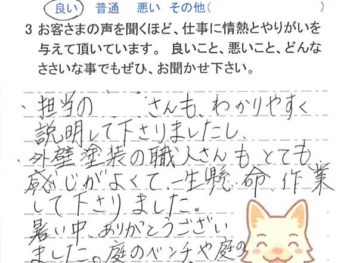 良い 普通 悪い その他(
3 お客さまの声を聞くほど、仕事に情熱とやりがいを
与えて頂いています。 良いこと、悪いこと、どんな
ささいな事でもぜひ、お聞かせ下さい。
・担当の さんも、わかりやすく
説明して下さりましたし、
・外壁塗装の職人さんも、とても
感じがよくて、一生懸命作業
して下さりました。
暑い中、ありがとうござい
ました。庭のベンチや庭の